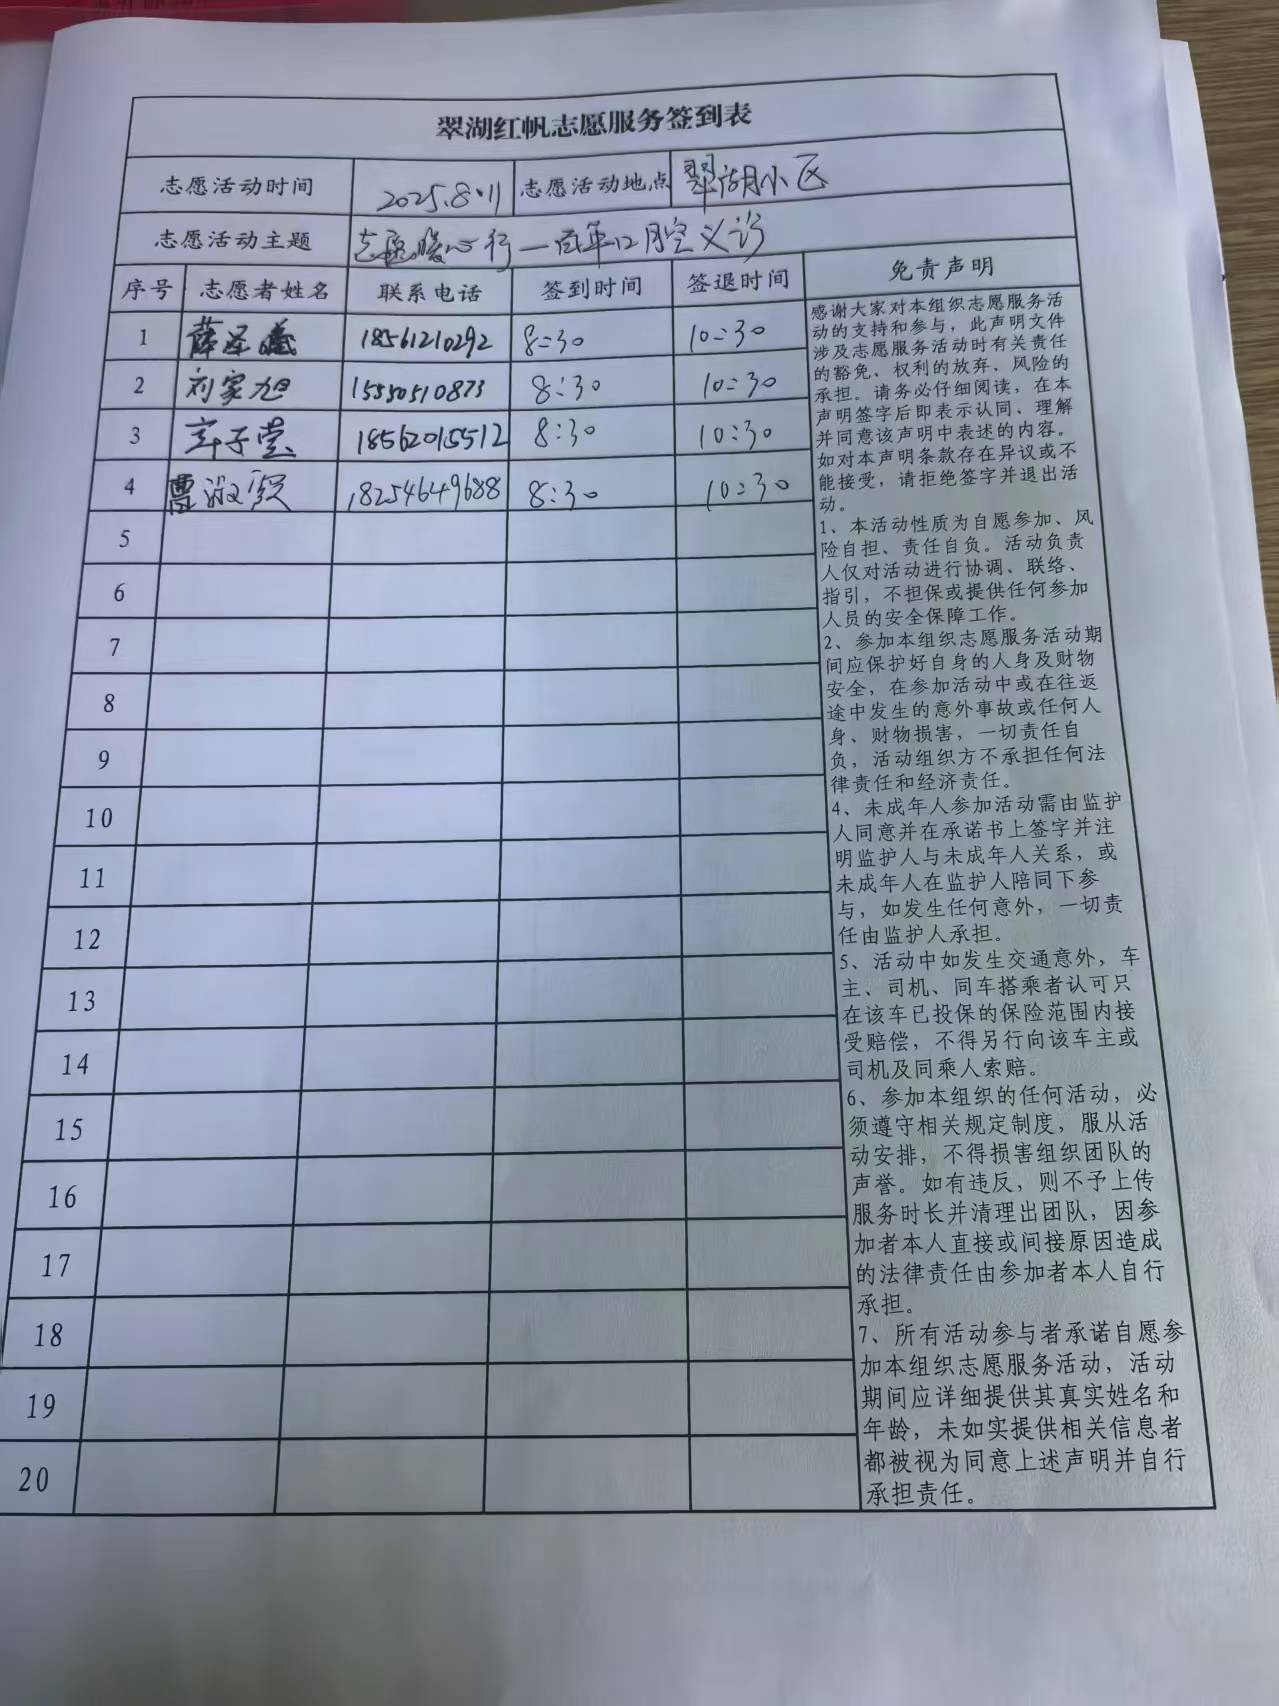 翠湖红帆志愿服务签到表
志愿活动时间 2025.8.11 志愿活动地点 翠湖小区
志愿活动主题 志愿暖心行—百年口腔义诊
序号 志愿者姓名 联系电话 签到时间 签退时间 免责声明
1 薛泽 18561210292 8:30 10:30
2 刘家旭 15550510873 8:30 10:30
3 子莹 18562015512 8:30 10:30
4 曹淑贤 18254649688 8:30 10:30
5
6
7
8
9
10
11
12
13
14
15
16
17
18
19
20
感谢大家对本组织志愿服务活
动的支持和参与，此声明文件
涉及志愿服务活动时有关责任
的豁免、权利的放弃、风险的
承担。请务必仔细阅读，在本
声明签字后即表示认同、理解
并同意该声明中表述的内容。
如对本声明条款存在异议或不
能接受，请拒绝签字并退出活
动。
1、本活动性质为自愿参加、风
险自担、责任自负。活动负责
人仅对活动进行协调、联络、
指引，不担保或提供任何参加
人员的安全保障工作。
2、参加本组织志愿服务活动期
间应保护好自身的人身及财物
安全，在参加活动中或在往返
途中发生的意外事故或任何人
身、财物损害，一切责任自
负，活动组织方不承担任何法
律责任和经济责任。
4、未成年人参加活动需由监护
人同意并在承诺书上签字并注
明监护人与未成年人关系，或
未成年人在监护人陪同下参
与，如发生任何意外，一切责
任由监护人承担。
5、活动中如发生交通意外，车
主、司机、同车搭乘者认可只
在该车已投保的保险范围内接
受赔偿，不得另行向该车主或
司机及同乘人索赔。
6、参加本组织的任何活动，必
须遵守相关规定制度，服从活
动安排，不得损害组织团队的
声誉。如有违反，则不予上传
服务时长并清理出团队，因参
加者本人直接或间接原因造成
的法律责任由参加者本人自行
承担。
7、所有活动参与者承诺自愿参
加本组织志愿服务活动，活动
期间应详细提供其真实姓名和
年龄，未如实提供相关信息者
都被视为同意上述声明并自行
承担责任。